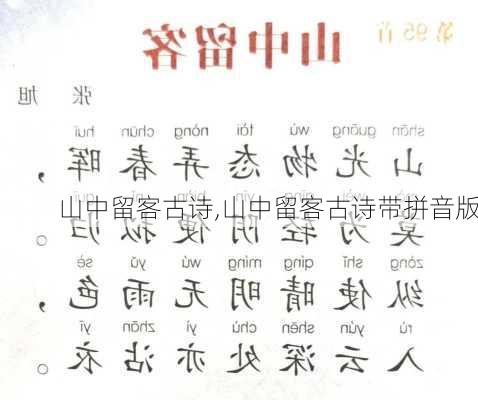 第95首
山中留客
张 旭
shān guāng wù tài nòng chūn huī
山光物态弄春晖，
山中留客古诗,山中留客古诗带拼音版
莫为轻阴便拟归。
zòng shǐ qíng míng wú yǔ sè
纵使晴明无雨色，
rù yún shēn chù yì zhān yī
入云深处亦沾衣。